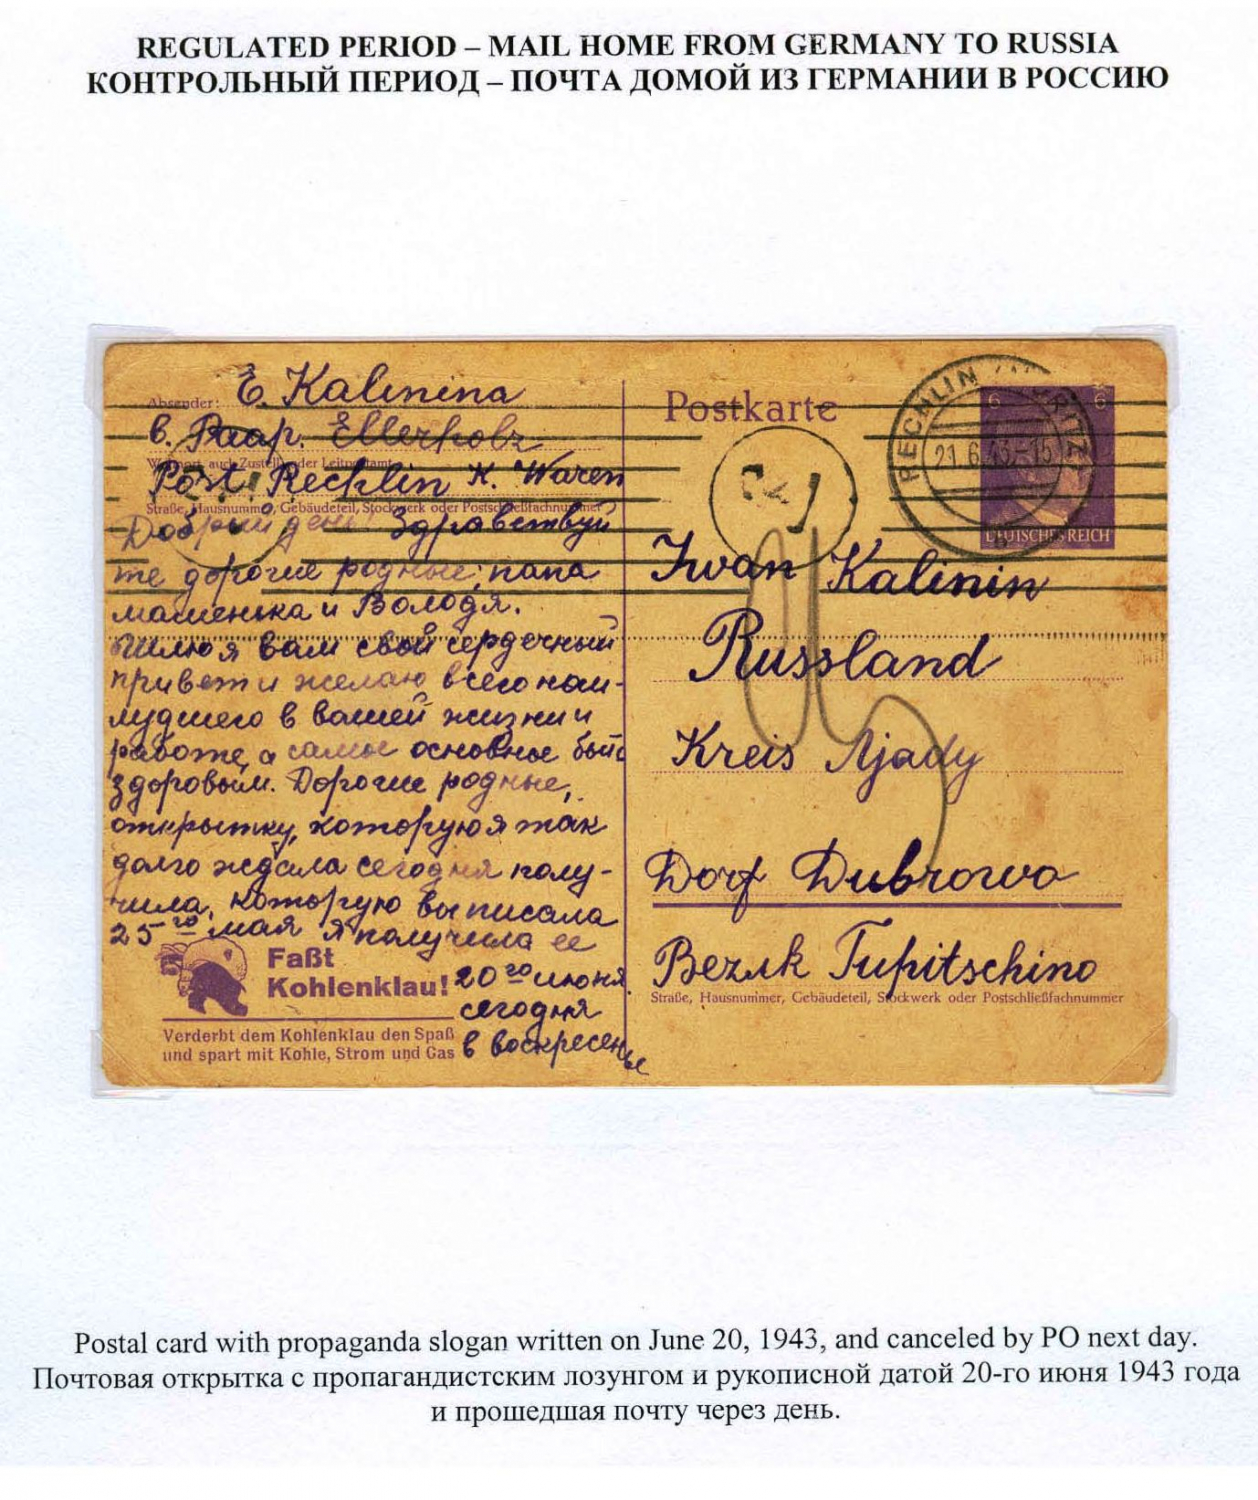 REGULATED PERIOD – MAIL HOME FROM GERMANY TO RUSSIA
КОНТРОЛЬНЫЙ ПЕРИОД – ПОЧТА ДОМОЙ ИЗ ГЕРМАНИИ В РОССИЮ
Absender:
E. Kalinina
Ellerholz
Wohnort, auch Zustell- oder Leitpostamt
Post. Rechlin K. Waren
Straße, Hausnummer, Gebäudeteil, Stockwerk oder Postschließfachnummer
Добрый день! Здравствуй
те дорогие родные, папа
маменька и Володя.
Шлю я вам свой сердечный
привет и желаю всего наи-
лудшего в вашей жизни и
работе, а самое основное быть
здоровым. Дорогие родные,
открытку, которую я так
долго ждала сегодня полу-
чила, которую вы писала
25го мая я получила ее
20го июня
сегодня
в воскресенье
Faßt
Kohlenklau!
Verderbt dem Kohlenklau den Spaß
und spart mit Kohle, Strom und Gas
Postkarte
RECHLIN
21.6.43.-15
6 6
DEUTSCHES REICH
Iwan Kalinin
Russland
Kreis Ljady
Dorf Dubrowo
Bezirk Tupitschino
Straße, Hausnummer, Gebäudeteil, Stockwerk oder Postschließfachnummer
Postal card with propaganda slogan written on June 20, 1943, and canceled by PO next day.
Почтовая открытка с пропагандистским лозунгом и рукописной датой 20-го июня 1943 года
и прошедшая почту через день.